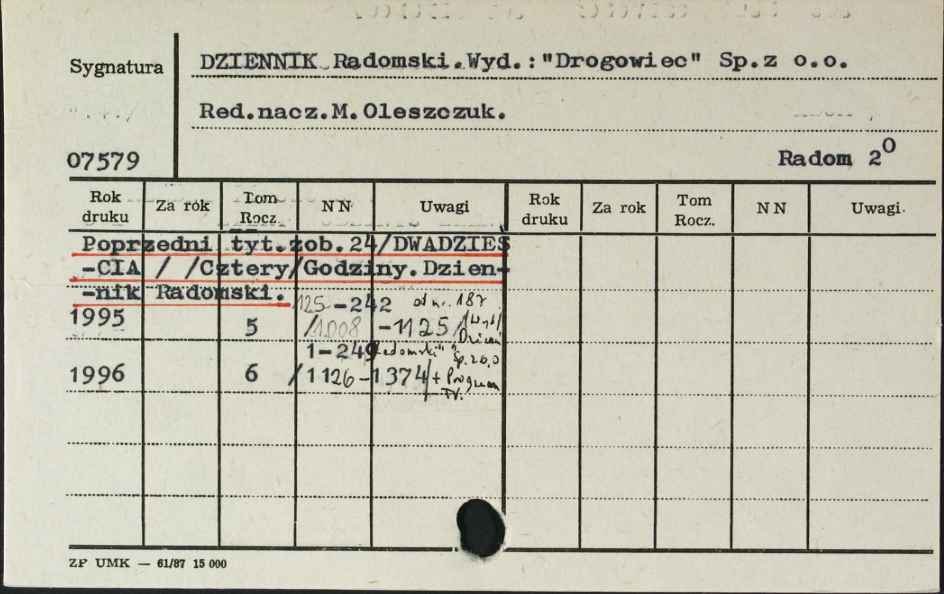 Sygnatura
DZIENNIK Radomski.Wyd.:"Drogowiec" Sp.z o.o.
Red.nacz.M.Oleszczuk.
07579
Radom 2⁰
Rok druku Za rok Tom Rocz. NN Uwagi Rok druku Za rok Tom Rocz. NN Uwagi
Poprzedni tyt.zob.24/DWADZIEŚ
-CIA / /Cztery/Godziny.Dzien-
-nik Radomski.
125-242 od nr. 187
1995 5 /1008 -1125/ /Wyd/
Dzien
1-249 Radomski" Sp.zo.o
1996 6 /1126-1374/ + Program
TV.
ZP UMK — 61/87 15 000